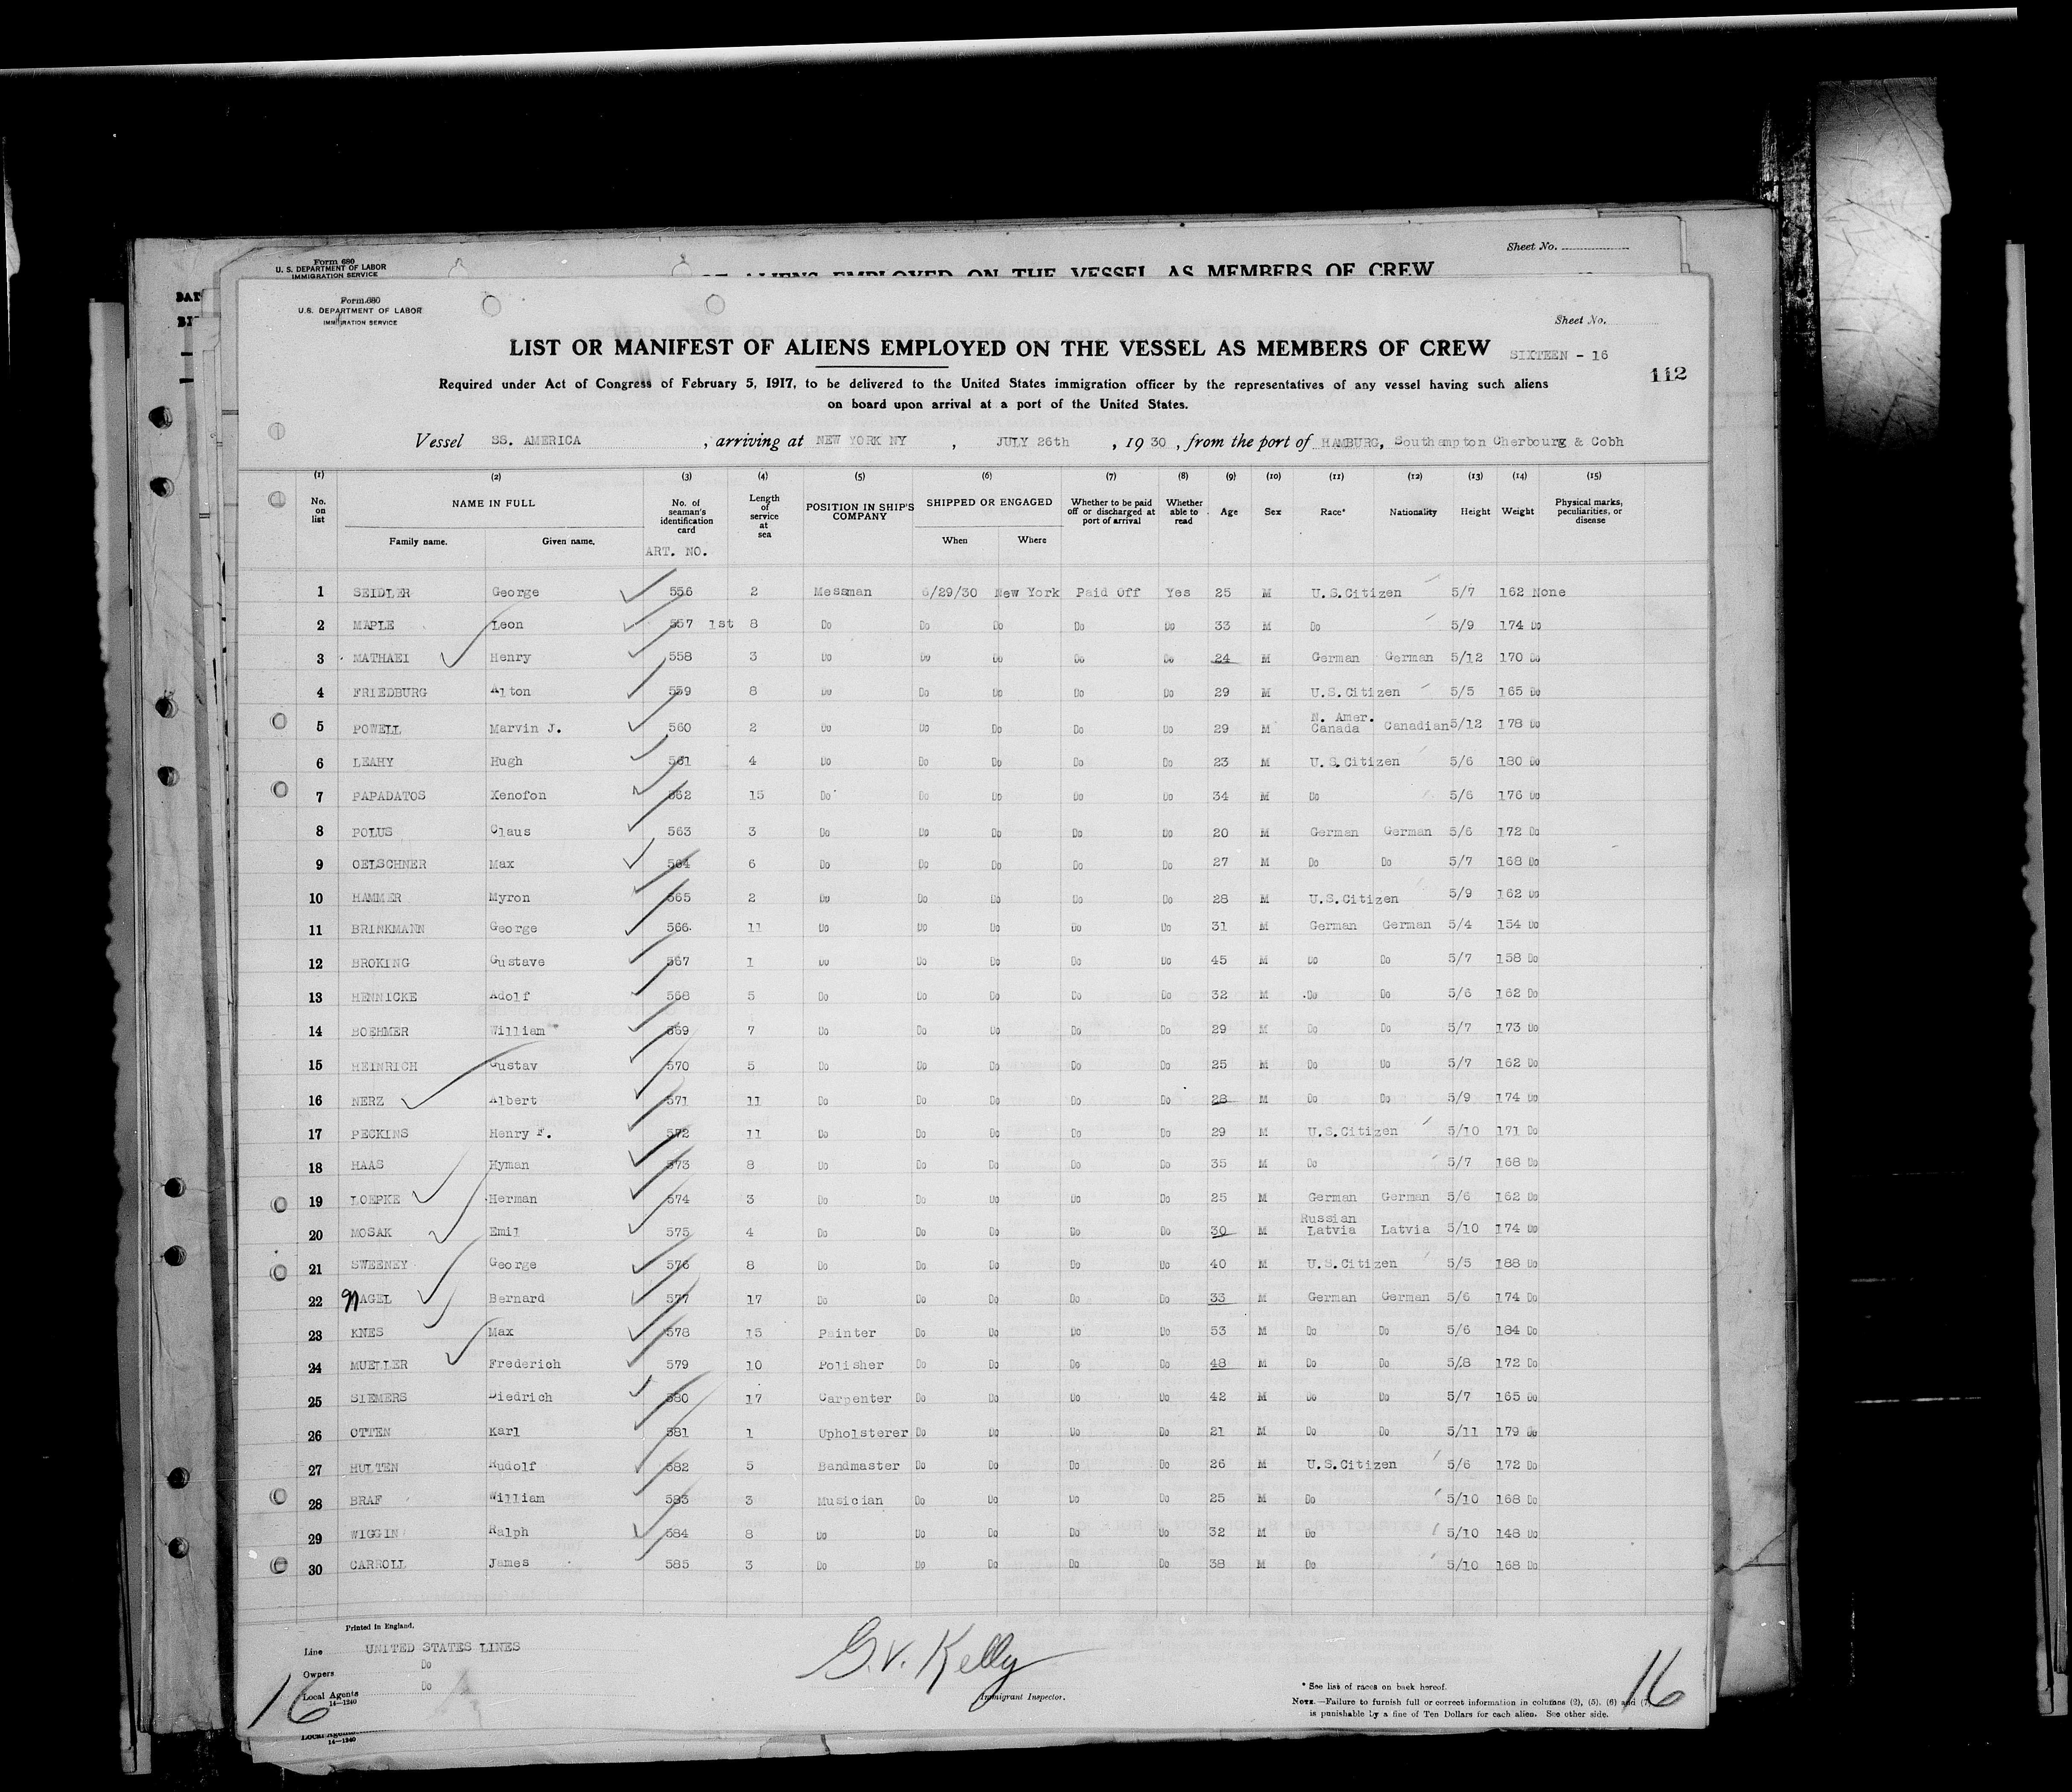 Sheet No.
Form 680
U. S. DEPARTMENT OF LABOR
IMMIGRATION SERVICE
ALIENS EMPLOYED ON THE VESSEL AS MEMBERS OF CREW
Form 680
U.S. DEPARTMENT OF LABOR
IMMIGRATION SERVICE
Sheet No.
LIST OR MANIFEST OF ALIENS EMPLOYED ON THE VESSEL AS MEMBERS OF CREW
SIXTEEN - 16
112
Required under Act of Congress of February 5, 1917, to be delivered to the United States immigration officer by the representatives of any vessel having such aliens
on board upon arrival at a port of the United States.
Vessel SS. AMERICA , arriving at NEW YORK NY , JULY 26th , 19 30 , from the port of HAMBURG, Southampton Cherbourg & Cobh
(1) (2) (3) (4) (5) (6) (7) (8) (9) (10) (11) (12) (13) (14) (15)
No. on list NAME IN FULL Family name. Given name. No. of seaman's identification card ART. NO. Length of service at sea POSITION IN SHIP'S COMPANY SHIPPED OR ENGAGED When Where Whether to be paid off or discharged at port of arrival Whether able to read Age Sex Race* Nationality Height Weight Physical marks, peculiarities, or disease
1 SEIDLER George 556 2 Messman 6/29/30 New York Paid Off Yes 25 M U.S.Citizen 5/7 162 None
2 MAPLE Leon 557 1st 8 Do Do Do Do Do 33 M Do 5/9 174 Do
3 MATHAEI Henry 558 3 Do Do Do Do Do 24 M German German 5/12 170 Do
4 FRIEDBURG Alton 559 8 Do Do Do Do Do 29 M U.S.Citizen 5/5 165 Do
5 POWELL Marvin J. 560 2 Do Do Do Do Do 29 M N. Amer. Canada Canadian 5/12 178 Do
6 LEAHY Hugh 561 4 Do Do Do Do Do 23 M U.S.Citizen 5/6 180 Do
7 PAPADATOS Xenofon 562 15 Do Do Do Do Do 34 M Do 5/6 176 Do
8 POLUS Claus 563 3 Do Do Do Do Do 20 M German German 5/6 172 Do
9 OELSCHNER Max 564 6 Do Do Do Do Do 27 M Do Do 5/7 168 Do
10 HAMMER Myron 565 2 Do Do Do Do Do 28 M U.S.Citizen 5/9 162 Do
11 BRINKMANN George 566 11 Do Do Do Do Do 31 M German German 5/4 154 Do
12 BROKING Gustave 567 1 Do Do Do Do Do 45 M Do Do 5/7 158 Do
13 HENNICKE Adolf 568 5 Do Do Do Do Do 32 M Do Do 5/6 162 Do
14 BOEHMER William 569 7 Do Do Do Do Do 29 M Do Do 5/7 173 Do
15 HEINRICH Gustav 570 5 Do Do Do Do Do 25 M Do Do 5/7 162 Do
16 NERZ Albert 571 11 Do Do Do Do Do 28 M Do Do 5/9 174 Do
17 PECKINS Henry F. 572 11 Do Do Do Do Do 29 M U.S.Citizen 5/10 171 Do
18 HAAS Hyman 573 8 Do Do Do Do Do 35 M Do 5/7 168 Do
19 LOEPKE Herman 574 3 Do Do Do Do Do 25 M German German 5/6 162 Do
20 MOSAK Emil 575 4 Do Do Do Do Do 30 M Russian Latvia Latvia 5/10 174 Do
21 SWEENEY George 576 8 Do Do Do Do Do 40 M U.S.Citizen 5/5 188 Do
22 NAGEL Bernard 577 17 Do Do Do Do Do 33 M German German 5/6 174 Do
23 KNES Max 578 15 Painter Do Do Do Do 53 M Do Do 5/6 184 Do
24 MUELLER Frederich 579 10 Polisher Do Do Do Do 48 M Do Do 5/8 172 Do
25 SIEMERS Diedrich 580 17 Carpenter Do Do Do Do 42 M Do Do 5/7 165 Do
26 OTTEN Karl 581 1 Upholsterer Do Do Do Do 21 M Do Do 5/11 179 Do
27 HULTEN Rudolf 582 5 Bandmaster Do Do Do Do 26 M U.S.Citizen 5/6 172 Do
28 BRAF William 583 3 Musician Do Do Do Do 25 M Do 5/10 168 Do
29 WIGGIN Ralph 584 8 Do Do Do Do Do 32 M Do 5/10 148 Do
30 CARROLL James 585 3 Do Do Do Do Do 38 M Do 5/10 168 Do
Printed in England.
Line UNITED STATES LINES
Owners Do
Local Agents Do
14-1240
16
G. V. Kelly
Immigrant Inspector.
* See list of races on back hereof.
NOTE.—Failure to furnish full or correct information in columns (2), (5), (6) and (7)
is punishable by a fine of Ten Dollars for each alien. See other side.
16
Local Agents
14-1240